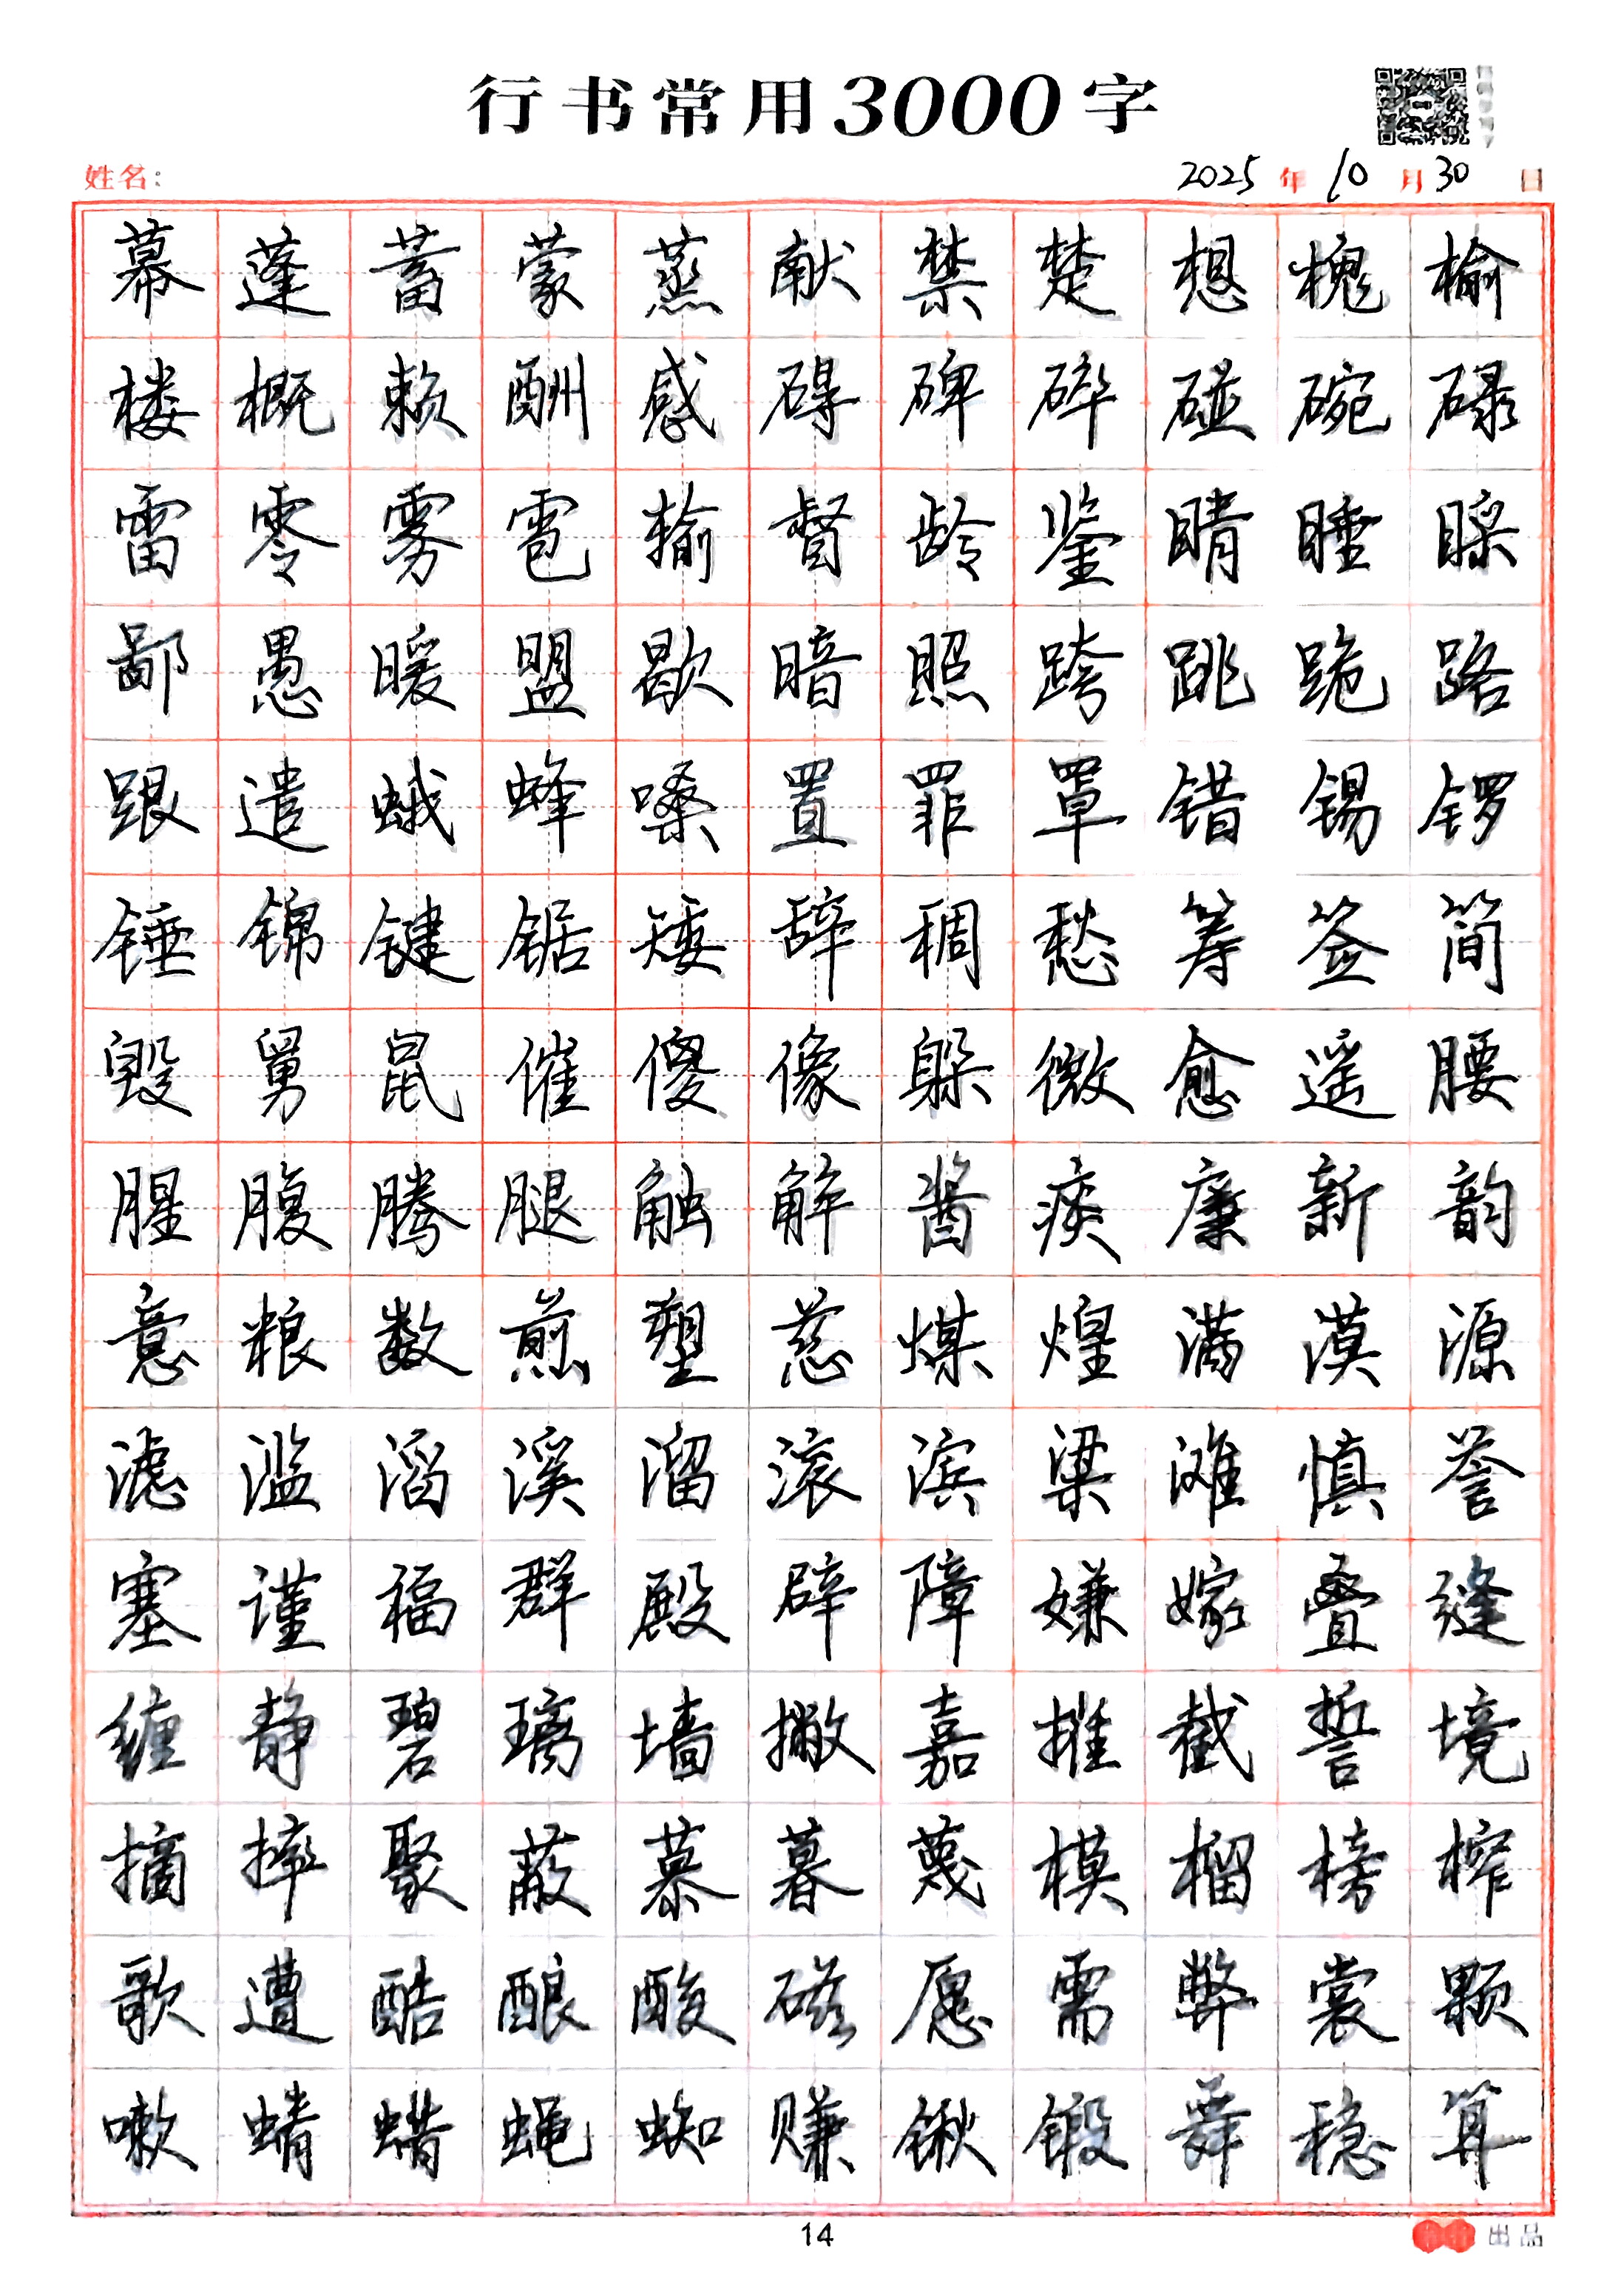 行书常用3000字
姓名: 2025年10月30日
幕蓬蓄蒙蒸献禁楚想槐榆
楼概赖酬感碍碑碎碰碗碌
雷零雾雹输督龄鉴睛睡睬
鄙愚暖盟歇暗照跨跳跪路
跟遣蛾蜂嗓置罪罩错锡锣
锤锦键锯矮辞稠愁筹签简
毁舅鼠催傻像躲微愈遥腰
腥腹腾腿触解酱痰廉新韵
意粮数煎塑慈煤煌满漠源
滤滥滔溪溜滚滨粱滩慎誉
塞谨福群殿辟障嫌嫁叠缝
缠静碧璃墙撇嘉摧截誓境
摘摔聚蔽慕暮蔑模榴榜榨
歌遭酷酿酸磁愿需弊裳颗
嗽蜻蜡蝇蜘赚锹锻舞稳算
14
出品